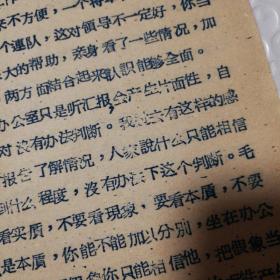 来不方便，一个将军
个連队，这对領导不一定好，你当
大的帮助，亲身看了一些情况，加
两方面結合起来认識能够全面。
办公室只是听汇报，会产生片面性，自
对没有办法判断。我就有这样的感
报告了解情况，人家說什么只能相信
到什么程度，没有办法下这个判断。毛
看实质，不要看現象，要看本质，不要
是本质，你能不能加以分別，坐在办公
你只能相信他，把現象当